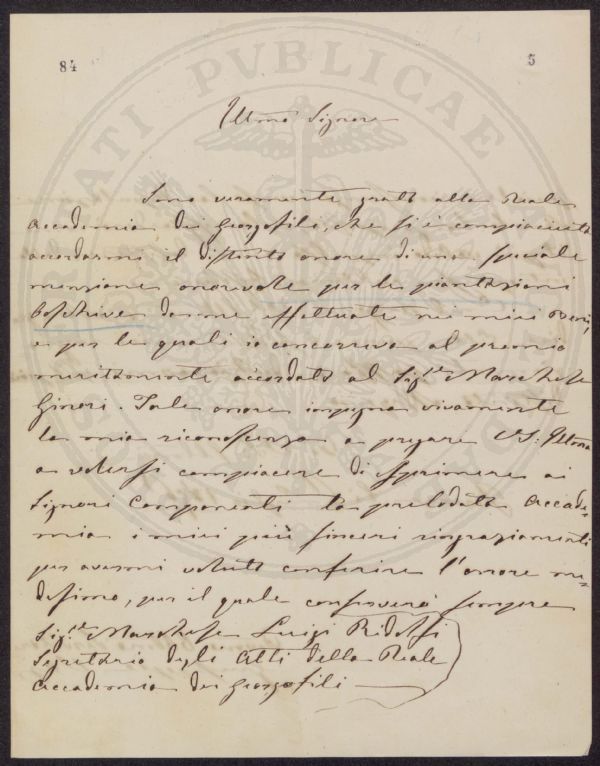 84
5
Illmo Signore
Sono veramente grato alla Reale
Accademia dei Georgofili, che si è compiaciuta
accordarmi il distinto onore di una speciale
menzione onorevole per le piantazioni
boschive da me effettuate nei miei Beni,
e per le quali io concorreva al premio
meritamente accordato al Sigre Marchese
Ginori. Tale onore impegna vivamente
la mia riconoscenza a pregare VS: Illma
a volersi compiacere di esprimere ai
Signori componenti la prelodata Accade=
mia i miei più sinceri ringraziamenti
per avermi voluto conferire l'onore me=
desimo, per il quale conserverò sempre
Sigre Marchese Luigi Ridolfi
Segretario degli Atti della Reale
Accademia dei Georgofili